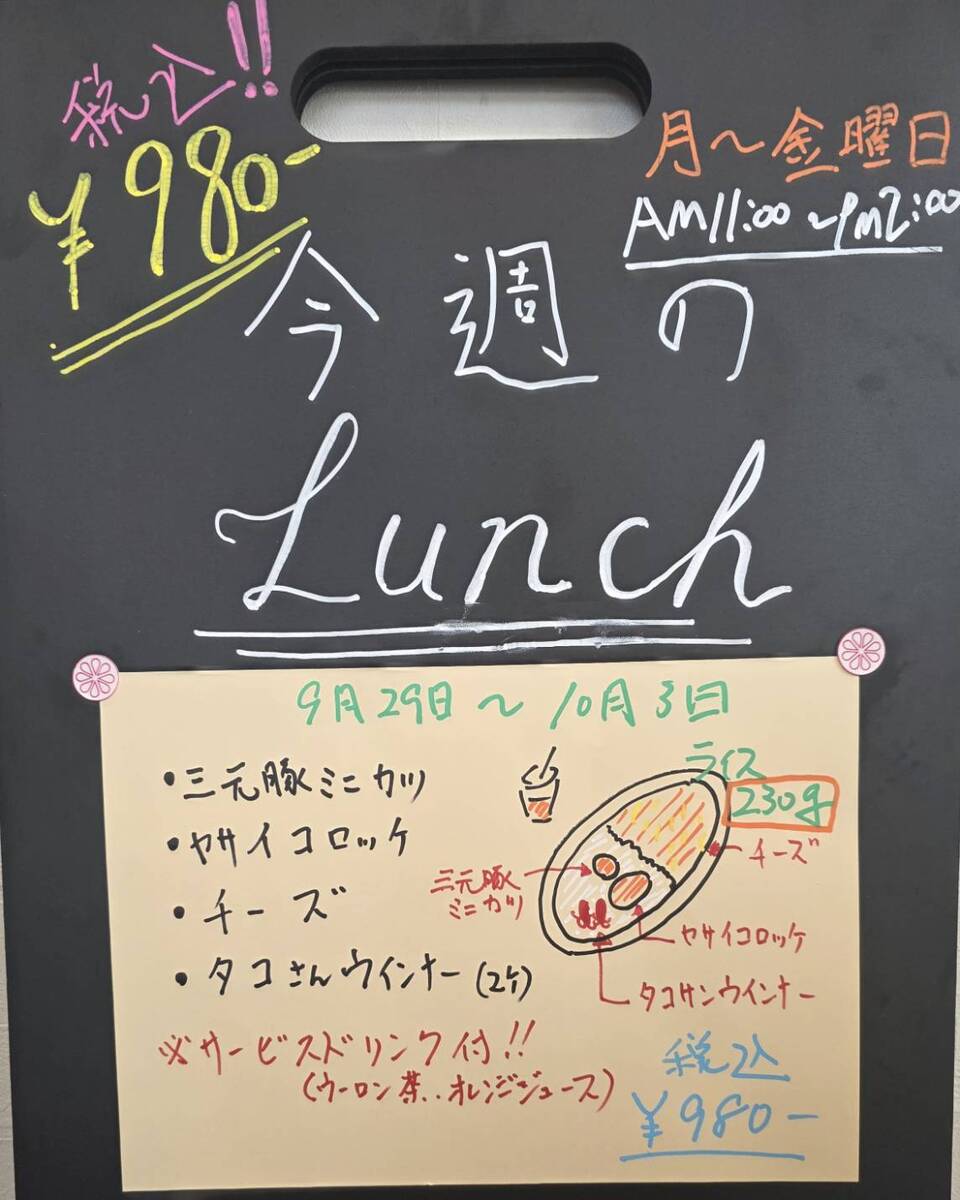 税込!!
¥980-
月～金曜日
AM11:00～PM2:00
今週の
Lunch
9月29日～10月3日
・三元豚ミニカツ
・ヤサイコロッケ
・チーズ
・タコさんウインナー(2ケ)
※サービスドリンク付!!
(ウーロン茶..オレンジジュース)
ライス
230g
チーズ
三元豚
ミニカツ
ヤサイコロッケ
タコサンウインナー
税込
¥980-